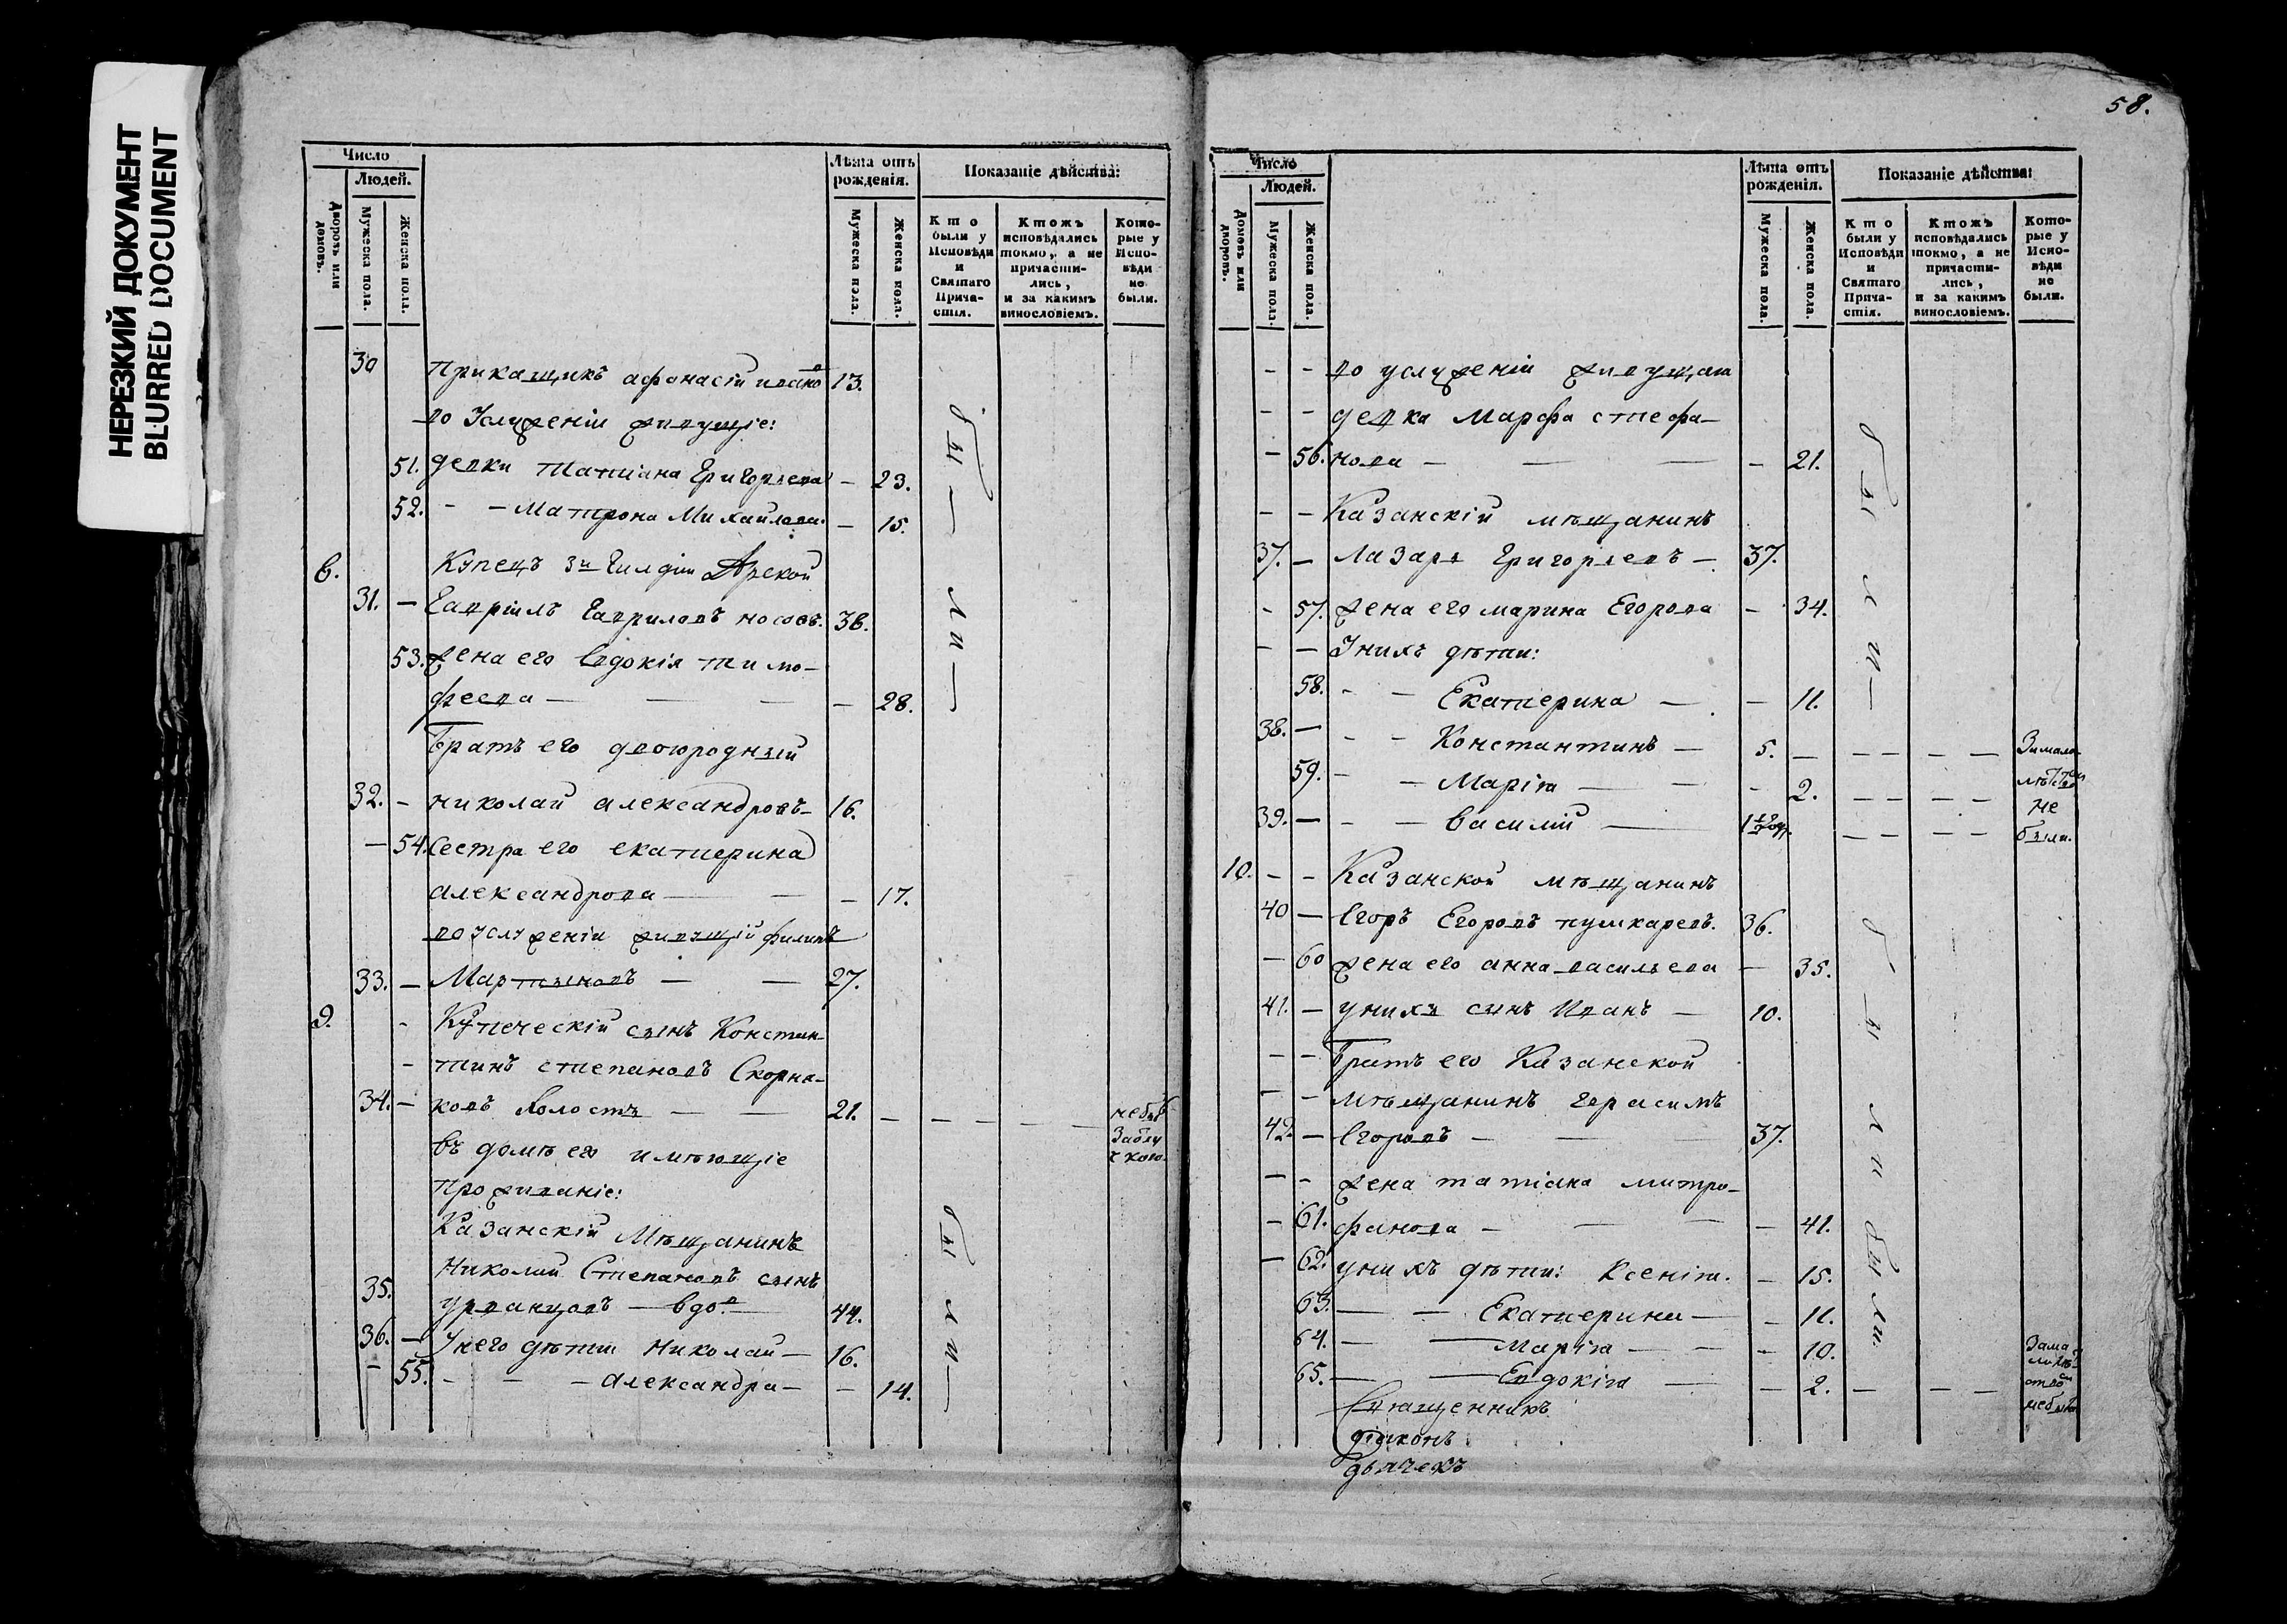 НЕРЕЗКИЙ ДОКУМЕНТ
BLURRED DOCUMENT
Число
Людей.
Дворовъ или домовъ.
Мужеска пола.
Женска пола.
Лѣта отъ рожденія.
Мужеска пола.
Женска пола.
Показаніе дѣйства:
Кто были у Исповѣди и Святаго Причастія.
Ктожъ исповѣдались токмо, а не причастились, и за какимъ винословіемъ.
Которые у Исповѣди не были.
30 прикащикъ афонасій ивано 13.
во Услуженіи живущіе:
51. девки татиана Григорьева – 23.
52. - - Матрона Михайлова. – 15.
Были
8. Купецъ 3й Гилдіи Арской
31. – Гавріилъ Гавриловъ носовъ. 38.
53. жена его Евдокія тимо-
феева — — — – 28.
Братъ его двоюродный
32. – николай александровъ – 16.
– 54. Сестра его екатерина
александрова — — – 17.
во услуженіи живущій филипъ
33. – Мартыновъ — — 27.
9. - Купеческій сынъ Констан-
- тинъ степановъ Скорня-
34. – ковъ холостъ — — 21. – – – – – небы
въ домѣ его имѣющіе
проживаніе:
Казанскій Мѣщанинъ
Николай Степановъ сынъ
35. урванцовъ — вдов 44.
36. – Унего дѣти Николай — 16.
– 55. - - - александра — – 14.
Были
58.
Число
Людей.
Домовъ или дворовъ.
Мужеска пола.
Женска пола.
Лѣта отъ рожденія.
Мужеска пола.
Женска пола.
Показаніе дѣйства:
Кто были у Исповѣди и Святаго Причастія.
Ктожъ исповѣдались токмо, а не причастились, и за какимъ винословіемъ.
Которые у Исповѣди не были.
- - во услуженіи живущая
- - девка Марфа стефа-
- 56. нова — — — – 21.
- - Казанскій мѣщанинъ
37. – Лазарь Григорьевъ – 37.
- 57. жена его марина Егорова – 34.
- – Унихъ дѣти:
58. - - Екатерина — – 11.
38. – - - Константинъ — 5. – – – – – За мало-
59. - - Марія — — - 2. – – – – лѣтствомъ
не
39. – - – василій —— 1 1/2 год. – – – – были.
Были
10. - - Казанской мѣщанинъ
40 – Егоръ Егоровъ пушкаревъ. 36.
– 60 жена его анна васильева – 35.
41. – унихъ сынъ Иванъ – 10.
- - Братъ его Казанской
- - мѣщанинъ герасимъ
42. – Егоровъ — — 37.
- - жена татіана митро-
- 61. фанова – — — – 41.
- 62. унихъ дѣти: Ксенія. – 15.
63. — — Екатерина — – 11.
64. — — Марія — – – 10.
65. — — Евдокія — – 2. – – – Зама
лолѣт
ство
небыла
Были
Были
Священникъ
діаконъ
дьячекъ